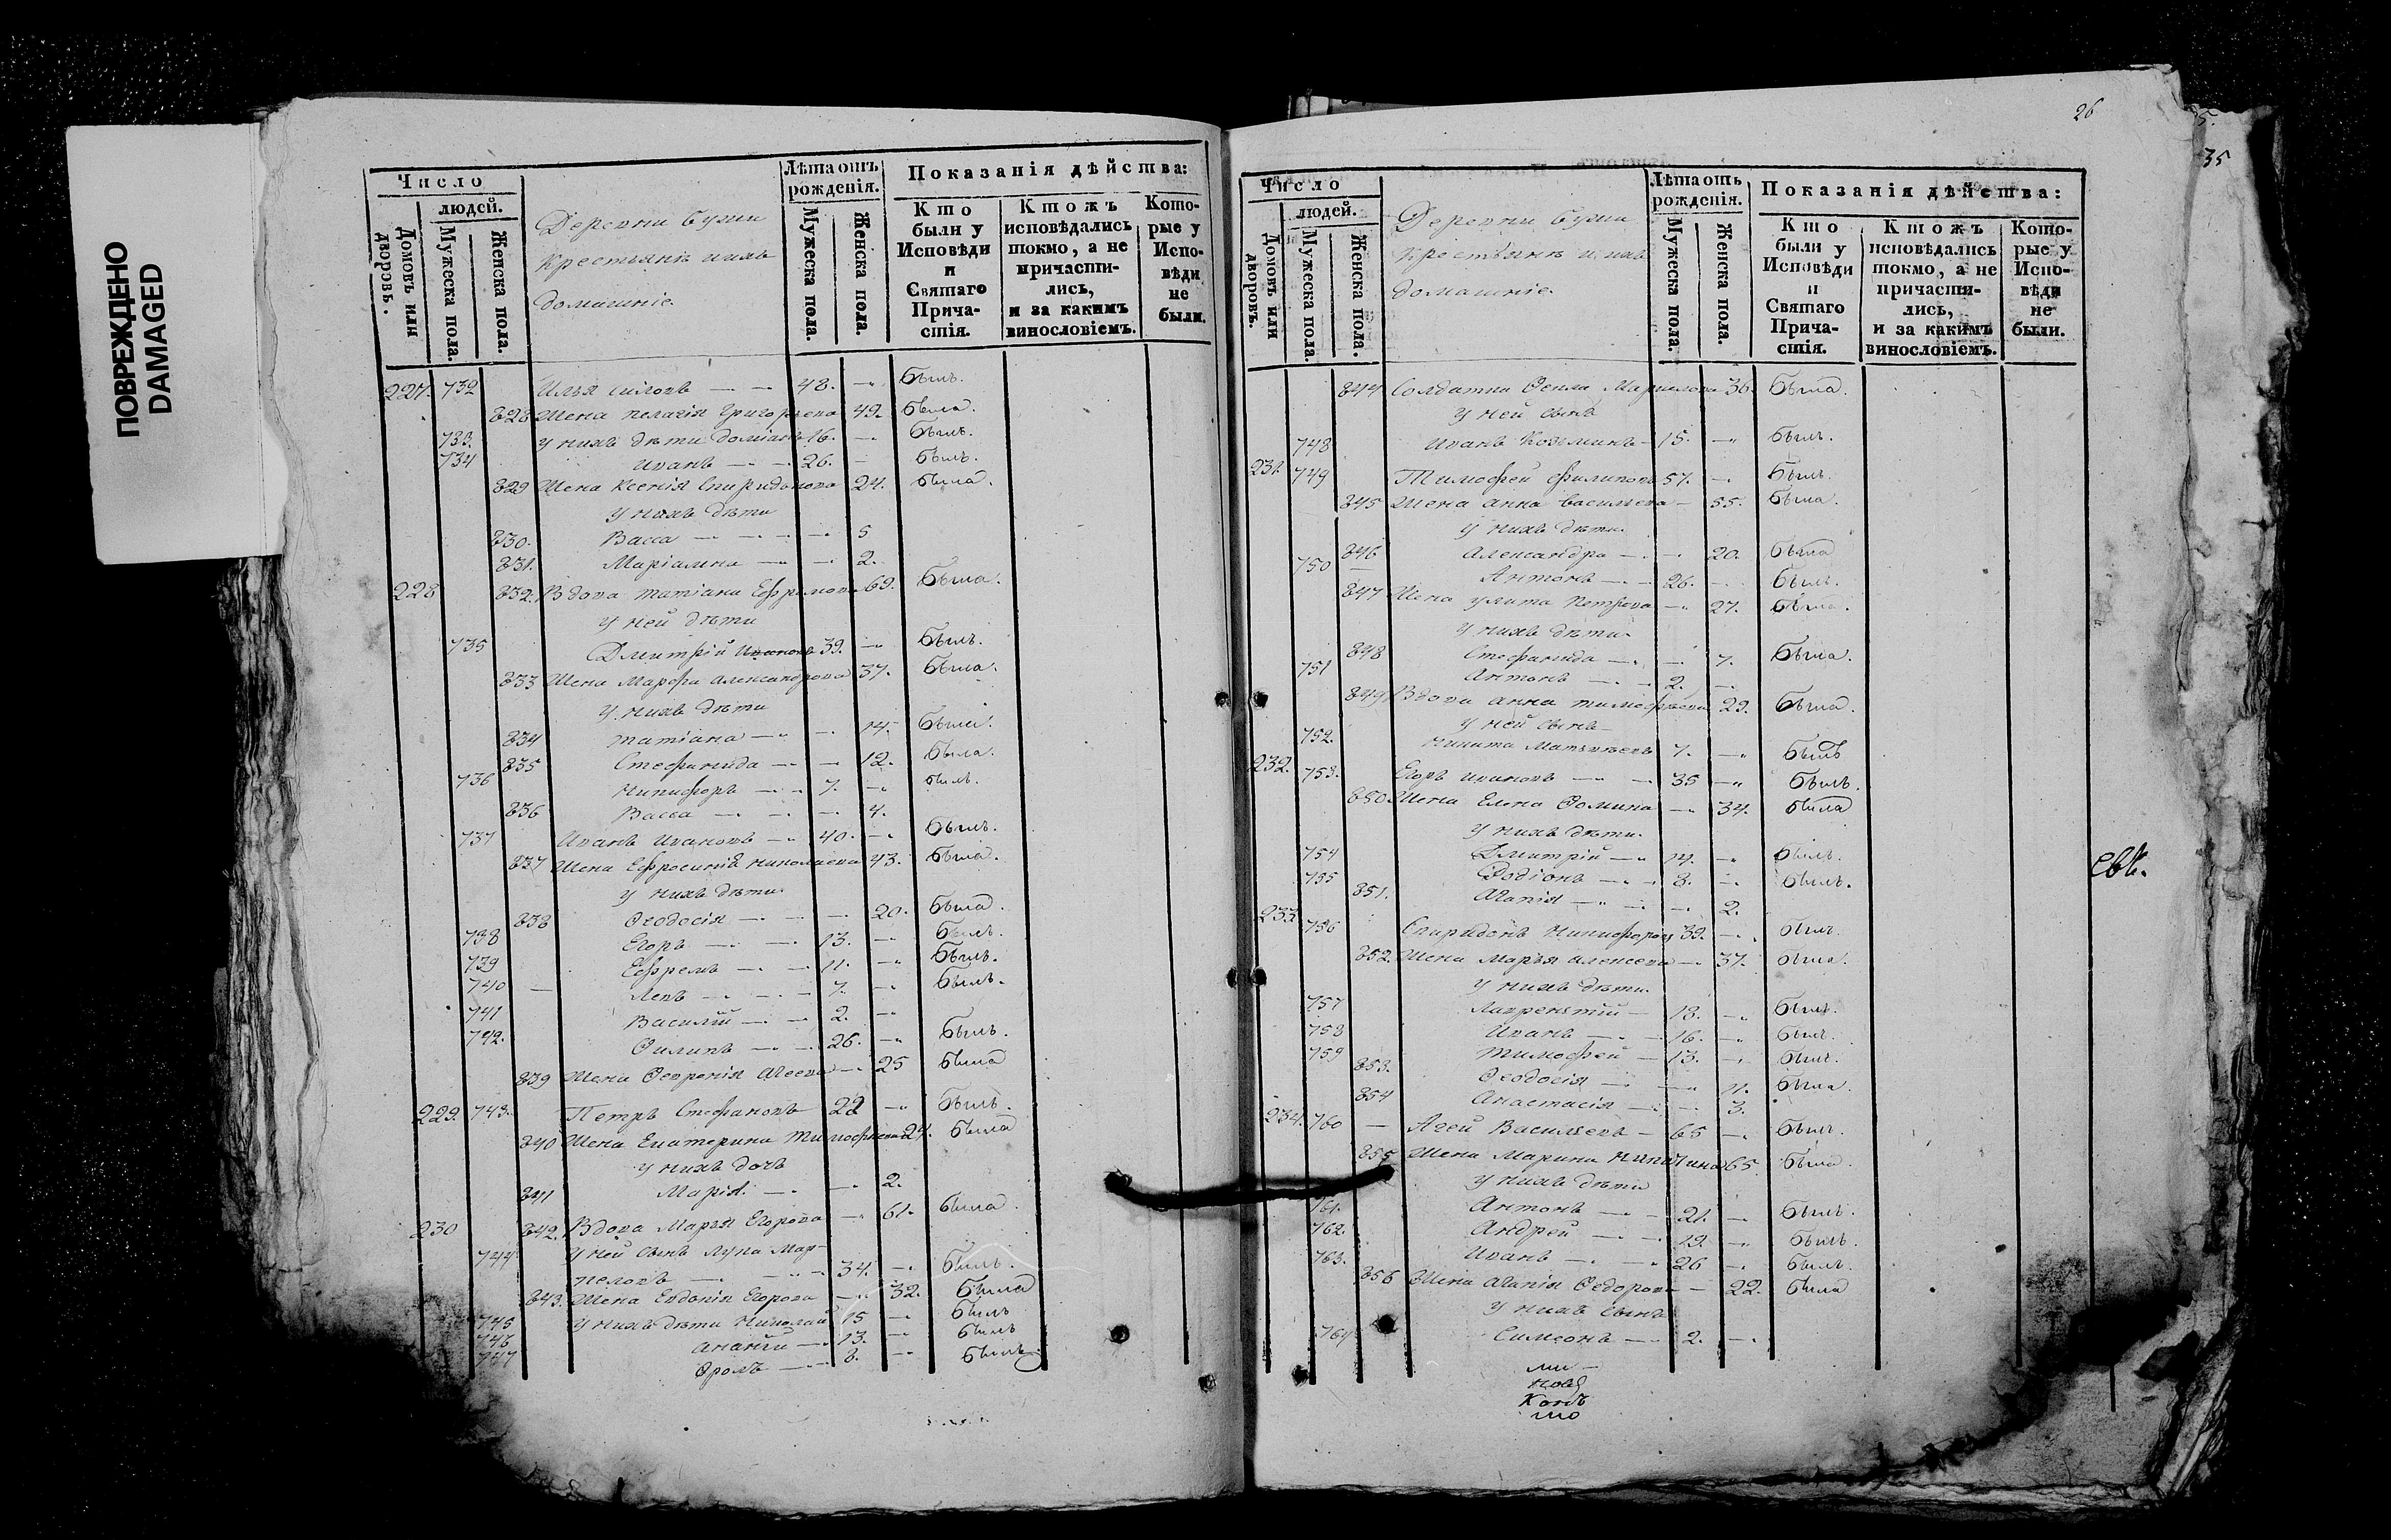 ПОВРЕЖДЕНО
DAMAGED
Число
людей.
Домовъ или дворовъ.
Мужеска пола.
Женска пола.
Деревни
крестьянъ ихъ
домашніе
Лѣта отъ рожденія.
Мужеска пола.
Женска пола.
Показанія дѣйства:
Кто были у Исповѣди и Святаго Прича-стія.
Ктожъ исповѣдались токмо, а не причасти-лись, и за какимъ винословіемъ.
Кото-рые у Испо-вѣди не были.
227. 732 Илья 48. Былъ.
828 Жена Пелагія Григорьева 49. Была.
733. у нихъ дѣти Доміанъ 16. Былъ.
734 Иванъ 26. Былъ.
829 Жена Ксенія Спиридонова 24. Была.
у нихъ дѣти
830. Васса 5
831. Маріамна 2.
228 832. Вдова Татіана Ефремова 69. Была.
у ней дѣти
735 Дмитрій Ивановъ 39. Былъ.
833 Жена Марфа Александрова 37. Была.
у нихъ дѣти
834 Татіана 14. Была.
835 Стефанида 12. Была.
736 Никифоръ 7. Былъ.
836 Васса 4.
737 Иванъ Ивановъ 40. Былъ.
837 Жена Ефросинія Николаева 43. Была.
у нихъ дѣти
838 Ѳеодосія 20. Была.
738 Егоръ 13. Былъ.
739 Ефремъ 11. Былъ.
740 Левъ 7. Былъ.
741 Василій 2.
742. Филипъ 26. Былъ.
839 Жена Ѳевронія Агеева 25 Была
229. 743. Петръ Стефановъ 22 Былъ.
840 Жена Екатерина Тимофѣева 24. Была
у нихъ дочь
841 Марія 2.
230 842. Вдова Марья Егорова 61. Была.
744 у ней сынъ Лука Мар-
келовъ 34. Былъ.
843. Жена Евдокія Егорова 32. Была
745 у нихъ дѣти Николай 15 Былъ
746 Ананій 13. Былъ
747 Фролъ 8. Былъ
26
35
Число
людей.
Домовъ или дворовъ.
Мужеска пола.
Женска пола.
Деревни
крестьянъ ихъ
домашніе
Лѣта отъ рожденія.
Мужеска пола.
Женска пола.
Показанія дѣйства:
Кто были у Исповѣди и Святаго Прича-стія.
Ктожъ исповѣдались токмо, а не причасти-лись, и за какимъ винословіемъ.
Кото-рые у Испо-вѣди не были.
844 Солдатка Ѳекла 36. Была.
у ней сынъ
748 Иванъ Козьминъ 15. Былъ.
231. 749 Тимофей Филиповъ 57. Былъ.
845 Жена Анна Васильева 55. Была.
у нихъ дѣти
846 Александра 20. Была
750 Антонъ 26. Былъ.
847 Жена Улита Петрова 27. Была.
у нихъ дѣти
848 Стефанида 7. Была.
751 Антонъ 2.
849 Вдова Анна Тимофѣева 29. Была.
у ней сынъ
752. Никита Матвѣевъ 7. Былъ
232. 753. Егоръ Ивановъ 35 Былъ.
850 Жена Елена Фомина 34. Была
у нихъ дѣти
754 Дмитрій 14. Былъ.
755 Родіонъ 8. Былъ.
851. Агапія 2.
233. 756 Спиридонъ Никифоровъ 39. Былъ.
852. Жена Марья Алексеева 37. Была.
у нихъ дѣти
757 Лаврентій 18. Былъ.
758 Иванъ 16. Былъ.
759 Тимофей 13. Былъ.
853. Ѳеодосія 11. Была.
854 Анастасія 3.
234. 760 Агей Васильевъ 65 Былъ.
855 Жена Марина Никитина 65. Была.
у нихъ дѣти
761. Антонъ 21. Былъ.
762. Андрей 19. Былъ.
763. Иванъ 26 Былъ.
856 Жена Агапія Ѳедорова 22. Была
у нихъ сынъ
764 Симеонъ 2.